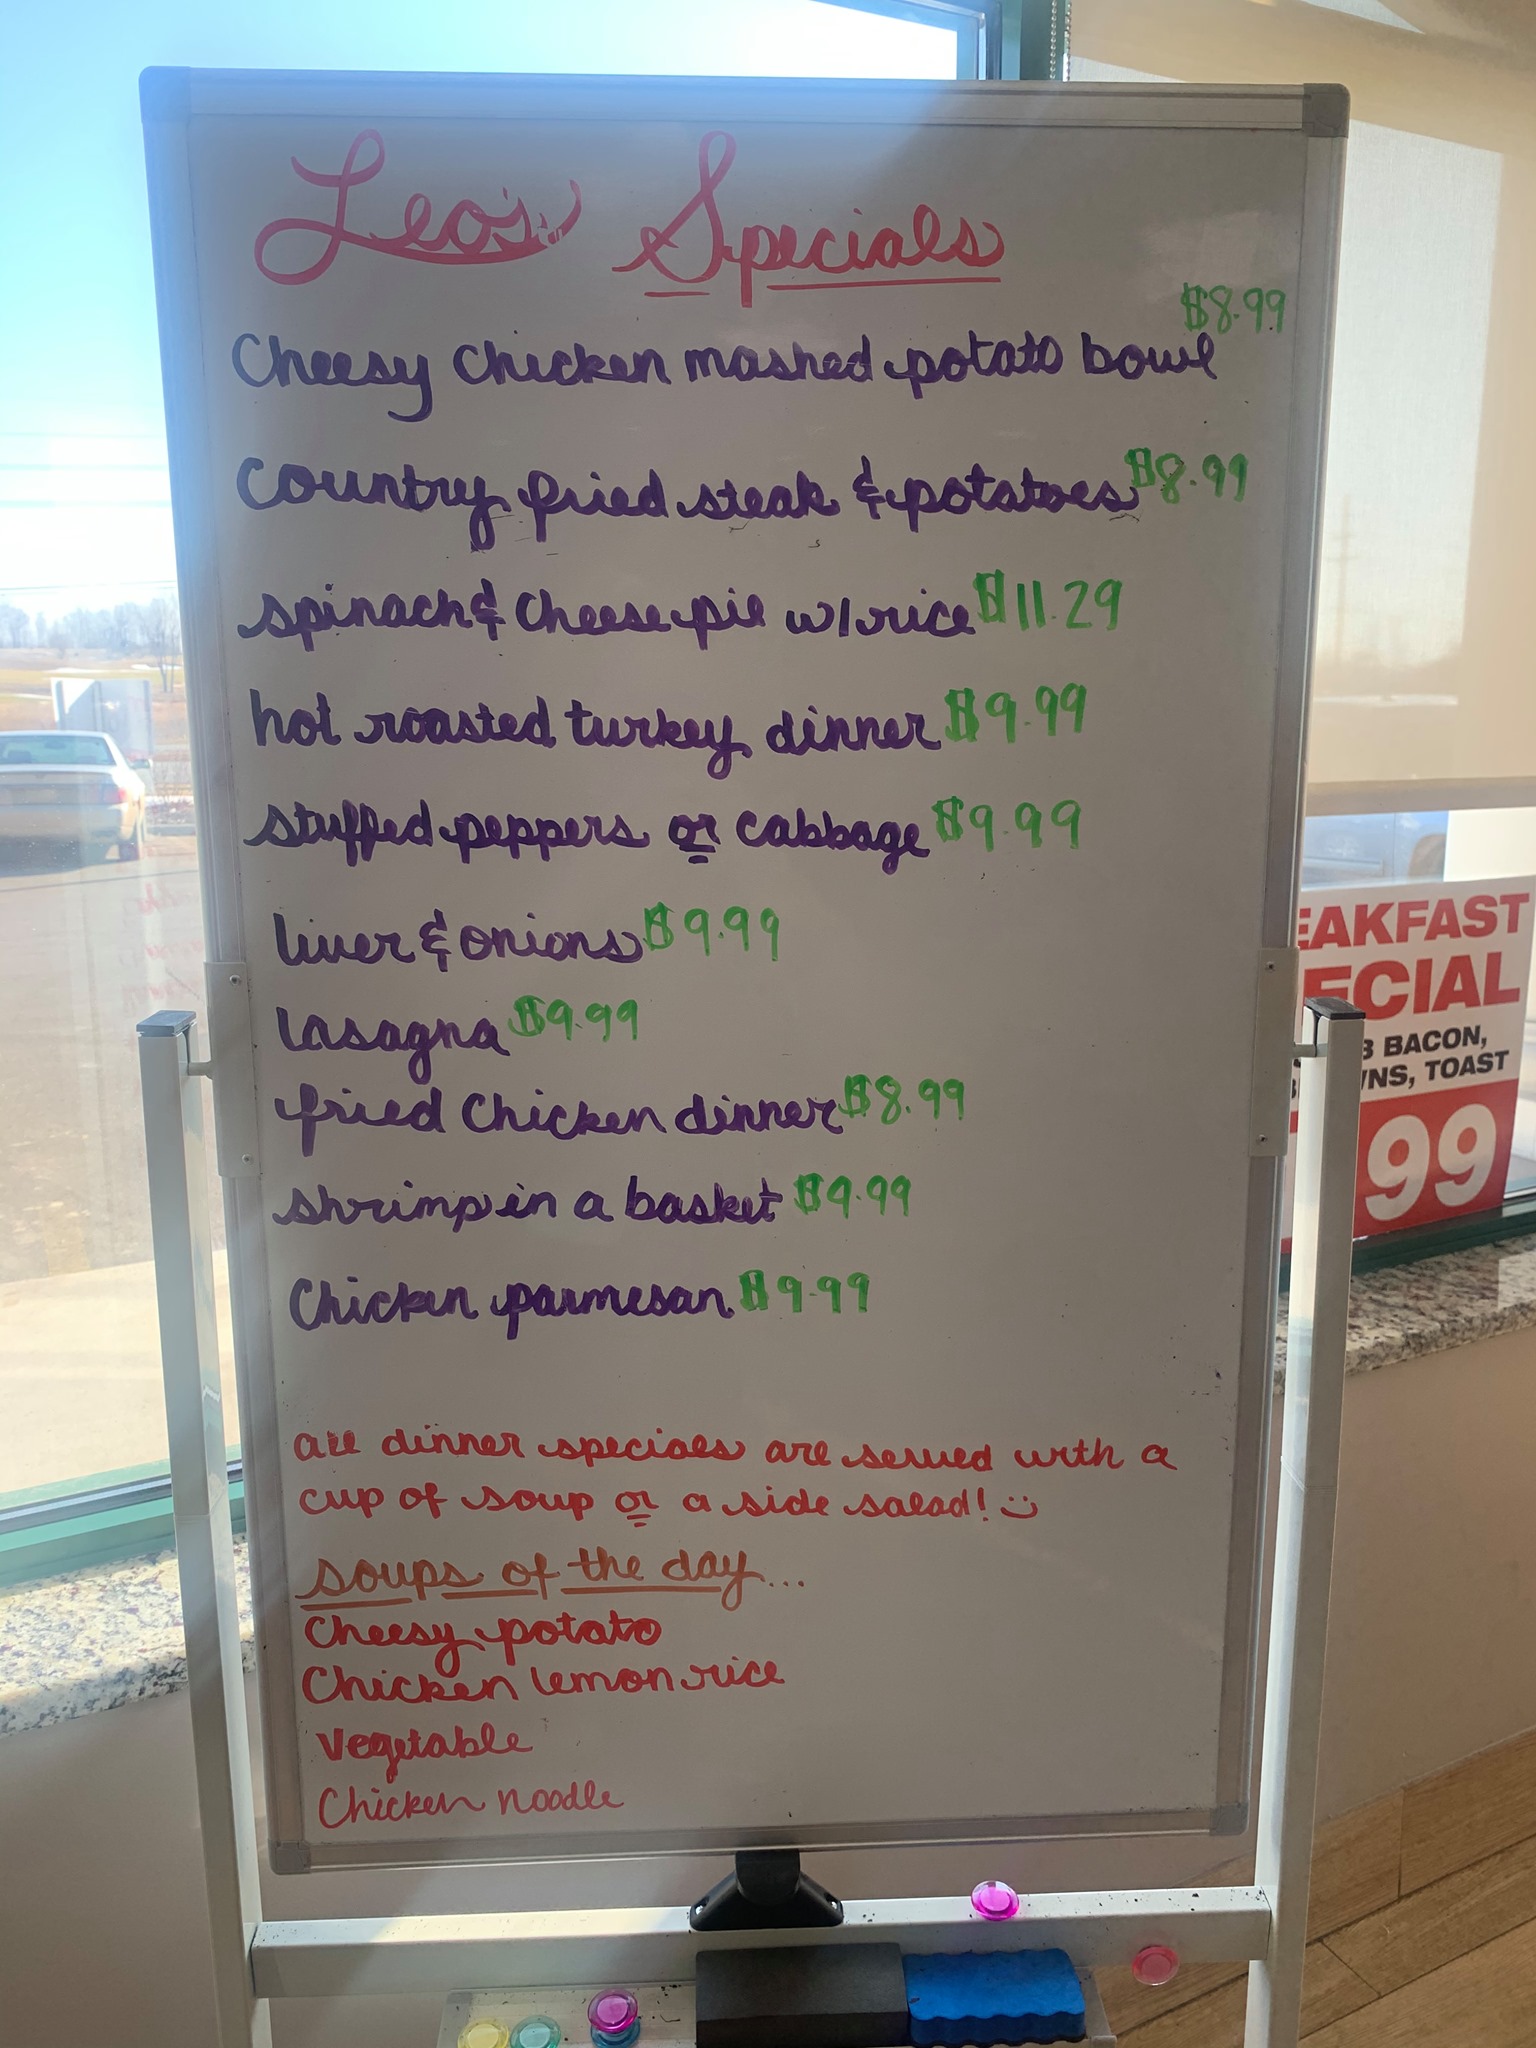 Leo's Specials
Cheesy Chicken mashed potato bowl $8.99
Country fried steak & potatoes $8.99
spinach & Cheese pie w/ rice $11.29
hot roasted turkey dinner $9.99
stuffed peppers or cabbage $9.99
liver & onions $9.99
lasagna $9.99
fried Chicken dinner $8.99
shrimp in a basket $9.99
Chicken parmesan $9.99
all dinner specials are served with a
cup of soup or a side salad!
soups of the day...
Cheesy potato
Chicken lemon rice
Vegetable
Chicken noodle
EAKFAST
ECIAL
BACON,
TOAST
99